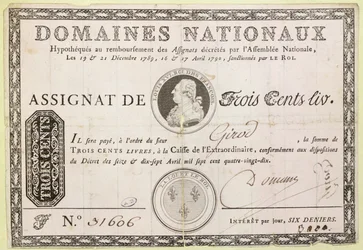 DOMAINES NATIONAUX
Hypothéqués au remboursement des Assignats décrétés par l'Assemblée Nationale,
Les 19 & 21 Décembre 1789, 16 & 17 Avril 1790, sanctionnés par LE ROI.
ASSIGNAT DE Trois Cents liv.
IL sera payé, à l'ordre du sieur Girod, la somme de
TROIS CENTS LIVRES, à la Caisse de l'Extraordinaire, conformément aux dispositions
du Décret des seize & dix-sept Avril mil sept cent quatre-vingt-dix.
TROIS CENTS
LA LOI ET LE ROI
N.° 31606
INTÉRÊT par Jour, SIX DENIERS.